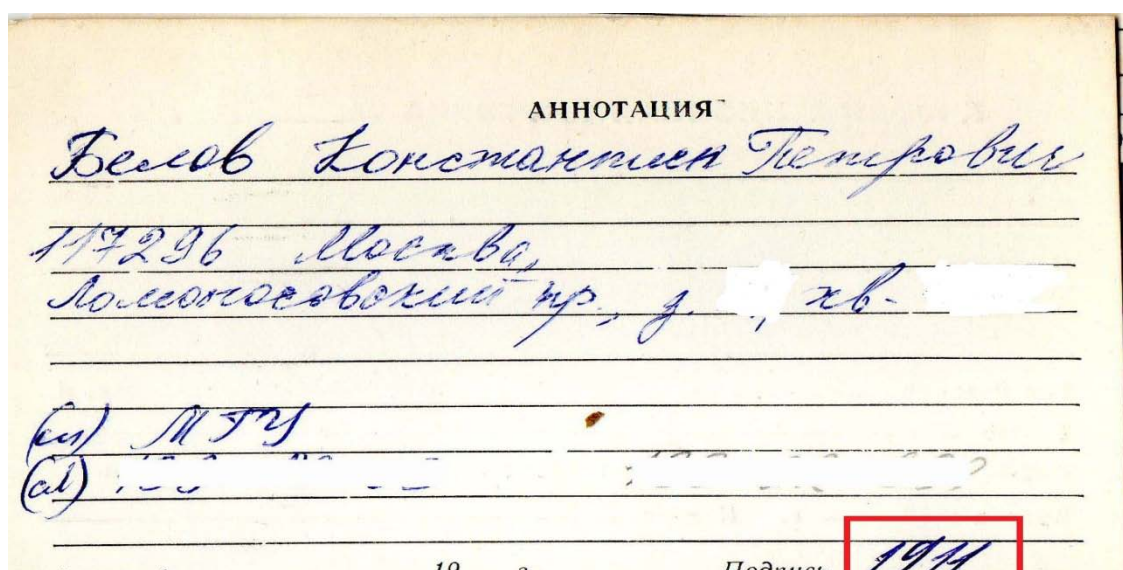 АННОТАЦИЯ
Белов Константин Петрович
117296 Москва,
Ломоносовский пр., д. , кв-
(сл) МГУ
19 г. Подпись 1911